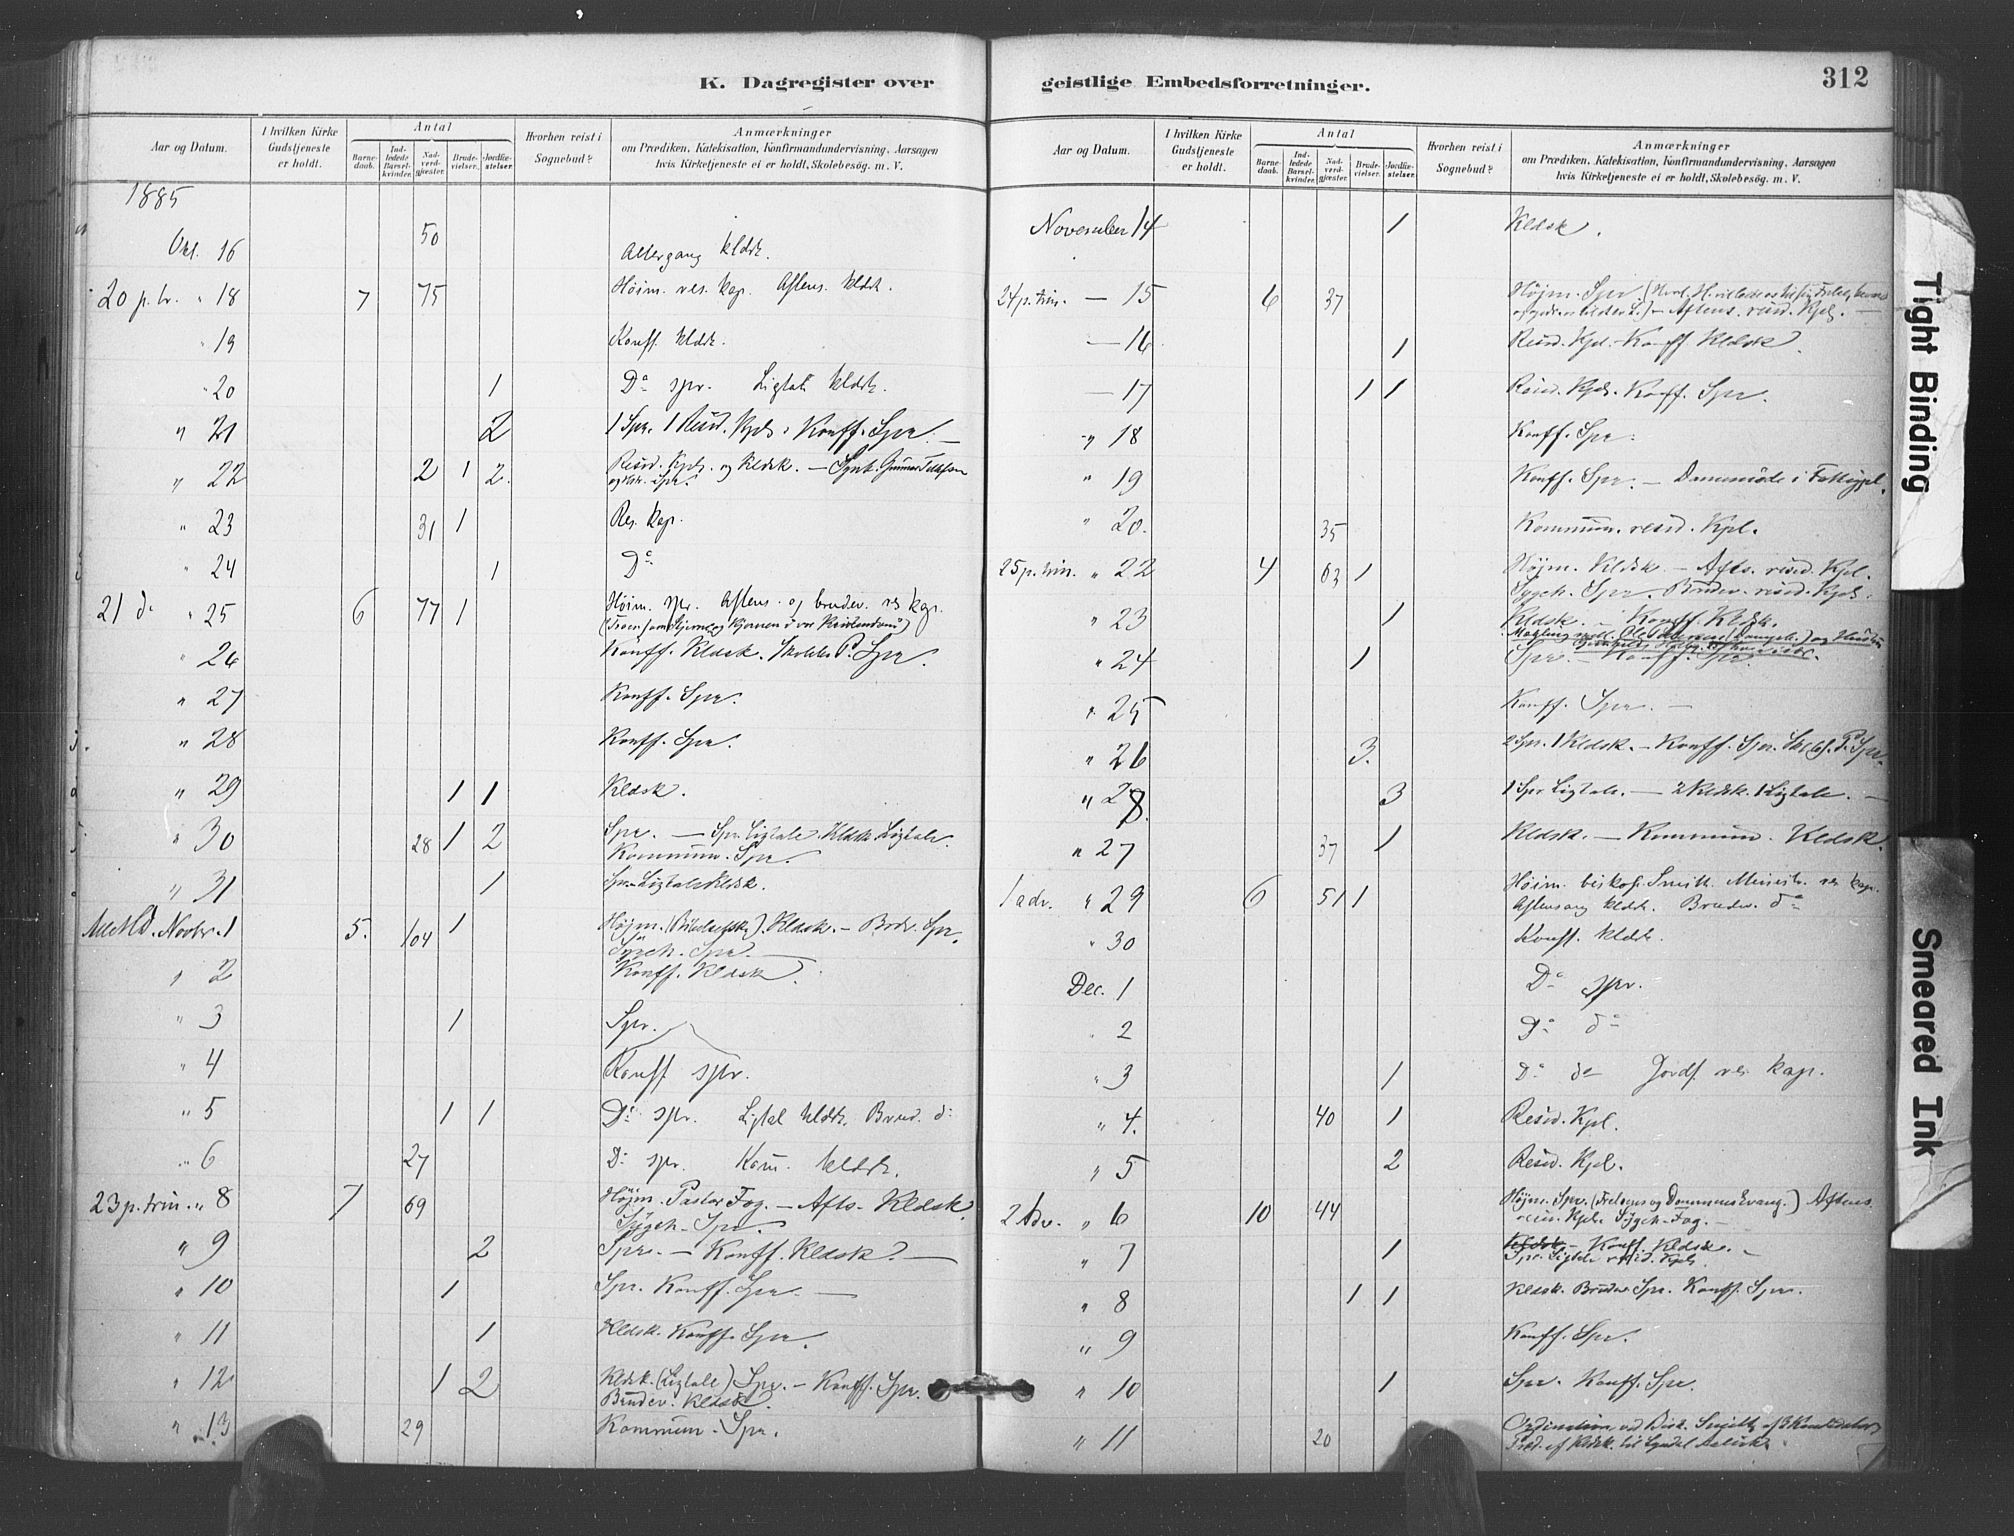 K. Dagregister over
Aar og Datum.
I hvilken Kirke Gudstjeneste er holdt.
Antal
Barnedaab.
Indledede Barselkvinder.
Nadverdgjæster.
Brudevielser.
Jordfæstelser.
Hvorhen reist i Sognebud?
Anmærkninger
om Prædiken, Katekisation, Konfirmandundervisning, Aarsagen
hvis Kirketjeneste ei er holdt, Skolebesøg. m. V.
1885
Okt. 16 50 Altergang kldsk.
20 p. tr. " 18 7 75 Høim. res. kap. Aftens. kldsk.
" 19 Konff. kldsk.
" 20 1 Do spr. Ligtale kldsk.
" 21 2 1 Spr. 1 Resid. Kpl. Konff. Spr. —
" 22 2 1 2. Resid. Kpl. og Kldsk. —
" 23 31 1 Res. kap.
" 24 1 Do
21 do " 25 6 77 1 Høim. spr. Aftens. og brudev. res kap.
" 26 Konff. Kldsk. Spr.
" 27 Konff. Spr.
" 28 Konff. Spr.
" 29 1 1 Kldsk.
" 30 28 1 2 Spr. — Spr. Ligtale. Kldsk. Ligtale.
Kommun. Spr.
" 31 1 Spr. Ligtale Kldsk.
Novbr. 1 5. 104 1 Højm. Kldsk. — Brdv. Spr.
Spr. —
" 2 Konff. Kldsk.
" 3 1 Spr.
" 4 Konff. spr.
" 5 1 1 Do spr. Ligtal kldsk. Brud. do
" 6 27 Do spr. Kom. kldsk.
23 p. trin. " 8 7 69 Højm. Pastor Fog. — Afts. Kldsk.
Sygeh. Spr.
" 9 2 Spr. — Konff. Kldsk. —
" 10 1 Spr. Konff. Spr. —
" 11 1 Kldsk. Konff. Spr.
" 12 1 2 Kldsk. (Ligtale) Spr. — Konff. Spr.
Brudev. Kldsk.
" 13 29 Kommun. Spr.
geistlige Embedsforretninger.
312
Aar og Datum.
I hvilken Kirke Gudstjeneste er holdt.
Antal
Barnedaab.
Indledede Barselkvinder.
Nadverdgjæster.
Brudevielser.
Jordfæstelser.
Hvorhen reist i Sognebud?
Anmærkninger
om Prædiken, Katekisation, Konfirmandundervisning, Aarsagen
hvis Kirketjeneste ei er holdt, Skolebesøg. m. V.
November 14 1 Kldsk.
24 p. trin. — 15 6 37 Højm. Spr.
Aftens. resid. Kpl. —
— 16 1 Resid. Kpl. Konff Kldsk.
— 17 1 1 Resid. Kpl. Konff. Spr.
" 18 Konff. Spr.
" 19 Konff. Spr. —
" 20. 35 Kommun. resid. Kpl.
25 p. trin. " 22 4 63 1 Højm. Kldsk. — Afts. resid. Kpl.
Sygeh. Spr. Brudev. resid. Kpl.
" 23 1 Kldsk. — Konff. Kldsk.
" 24 1 Spr. — Konff. Spr.
" 25 Konff. Spr. —
" 26 3. 2 Spr. 1 Kldsk. — Konff. Spr. Spr.
" 28. 3 1 Spr Ligtale. — 2 Kldsk. 1 Ligtale. —
" 27 37 1 Kldsk. — Kommun. Kldsk.
1 adv. " 29 6 51 1 Høim. biskop Smitt. res kap.
Aftensang kldsk. Brudev. do
" 30 Konff. kldsk.
Dec. 1 Do spr.
" 2 Do do
" 3 1 Do do Jordf. res. kap.
" 4. 40 1 Resid. Kpl.
" 5 2 Resid. Kpl.
2 Adv. " 6 10 44 Højm. Spr. (Frelsens og Dommens Evang.) Aftens.
resid. Kpl. Sygeh. Fog. —
" 7 1 Kldsk. — Konff. Kldsk. —
Spr. Ligtale resid. Kpl.
" 8 1 1 Kldsk. Brudev. Spr. Konff. Spr.
" 9 Konff. Spr.
" 10 1 Spr. Konff. Spr.
" 11 20 Ordination ved Bisk. Smitt af 3 Kandidater
af Kldsk. til
Tight Binding
Smeared Ink